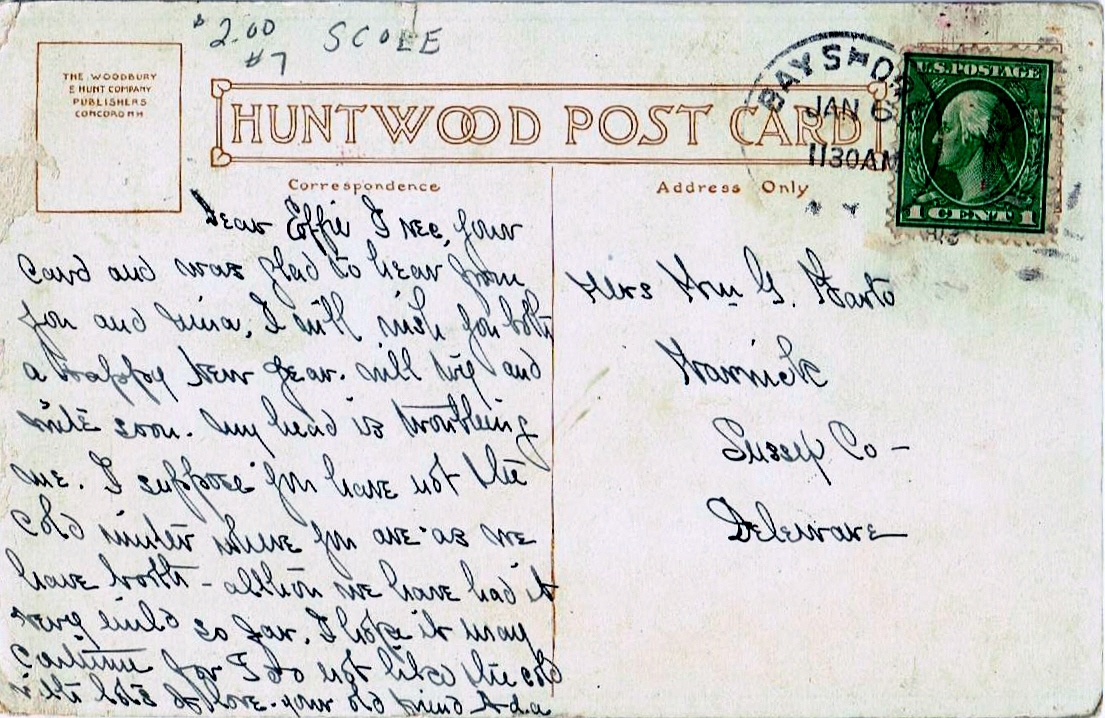 $2.00
#7
SCOLE
THE WOODBURY
E HUNT COMPANY
PUBLISHERS
CONCORD NH
HUNTWOOD POST CARD
BAY SHORE
JAN
1130AM
U.S. POSTAGE
1 CENT 1
Correspondence
Address Only
Dear Effie I rec, your
card and was glad to hear from
you and Nina, I will wish you both
a Happy New Year. will try and
write soon. My head is troubling
me. I suppose you have not the
cold winter where you are as we
have north - althou we have had it
very mild so far, I hope it may
continue for I do not like the cold
with lots of love. your old friend Ada
Mrs Wm G.
Warwick
Sussex Co -
Deleware